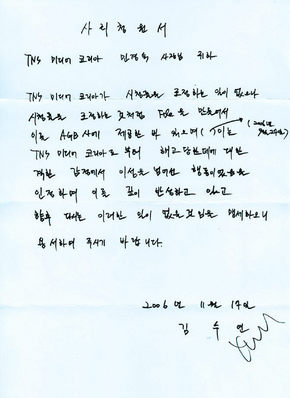 사 죄 청 원 서
TNS 미디어 코리아 민경숙 사장님 귀하
TNS 미디어 코리아가 시청률을 조작하는 일이 없으나
시청률을 조작하는 것처럼 File을 만들어서
이를 AGB사에 제공한 바 있으며 ( 이는 (2006년
TNS 미디어 코리아로 부터 해고 당한데에 대한
격한 감정에서 이성을 넘어선 행동이었음을
인정하며 이를 깊이 반성하고 있고
향후 다시는 이러한 일이 없을것임을 맹세하오니
용서하여 주시기 바랍니다.
2006년 11월 17일
김 수 연